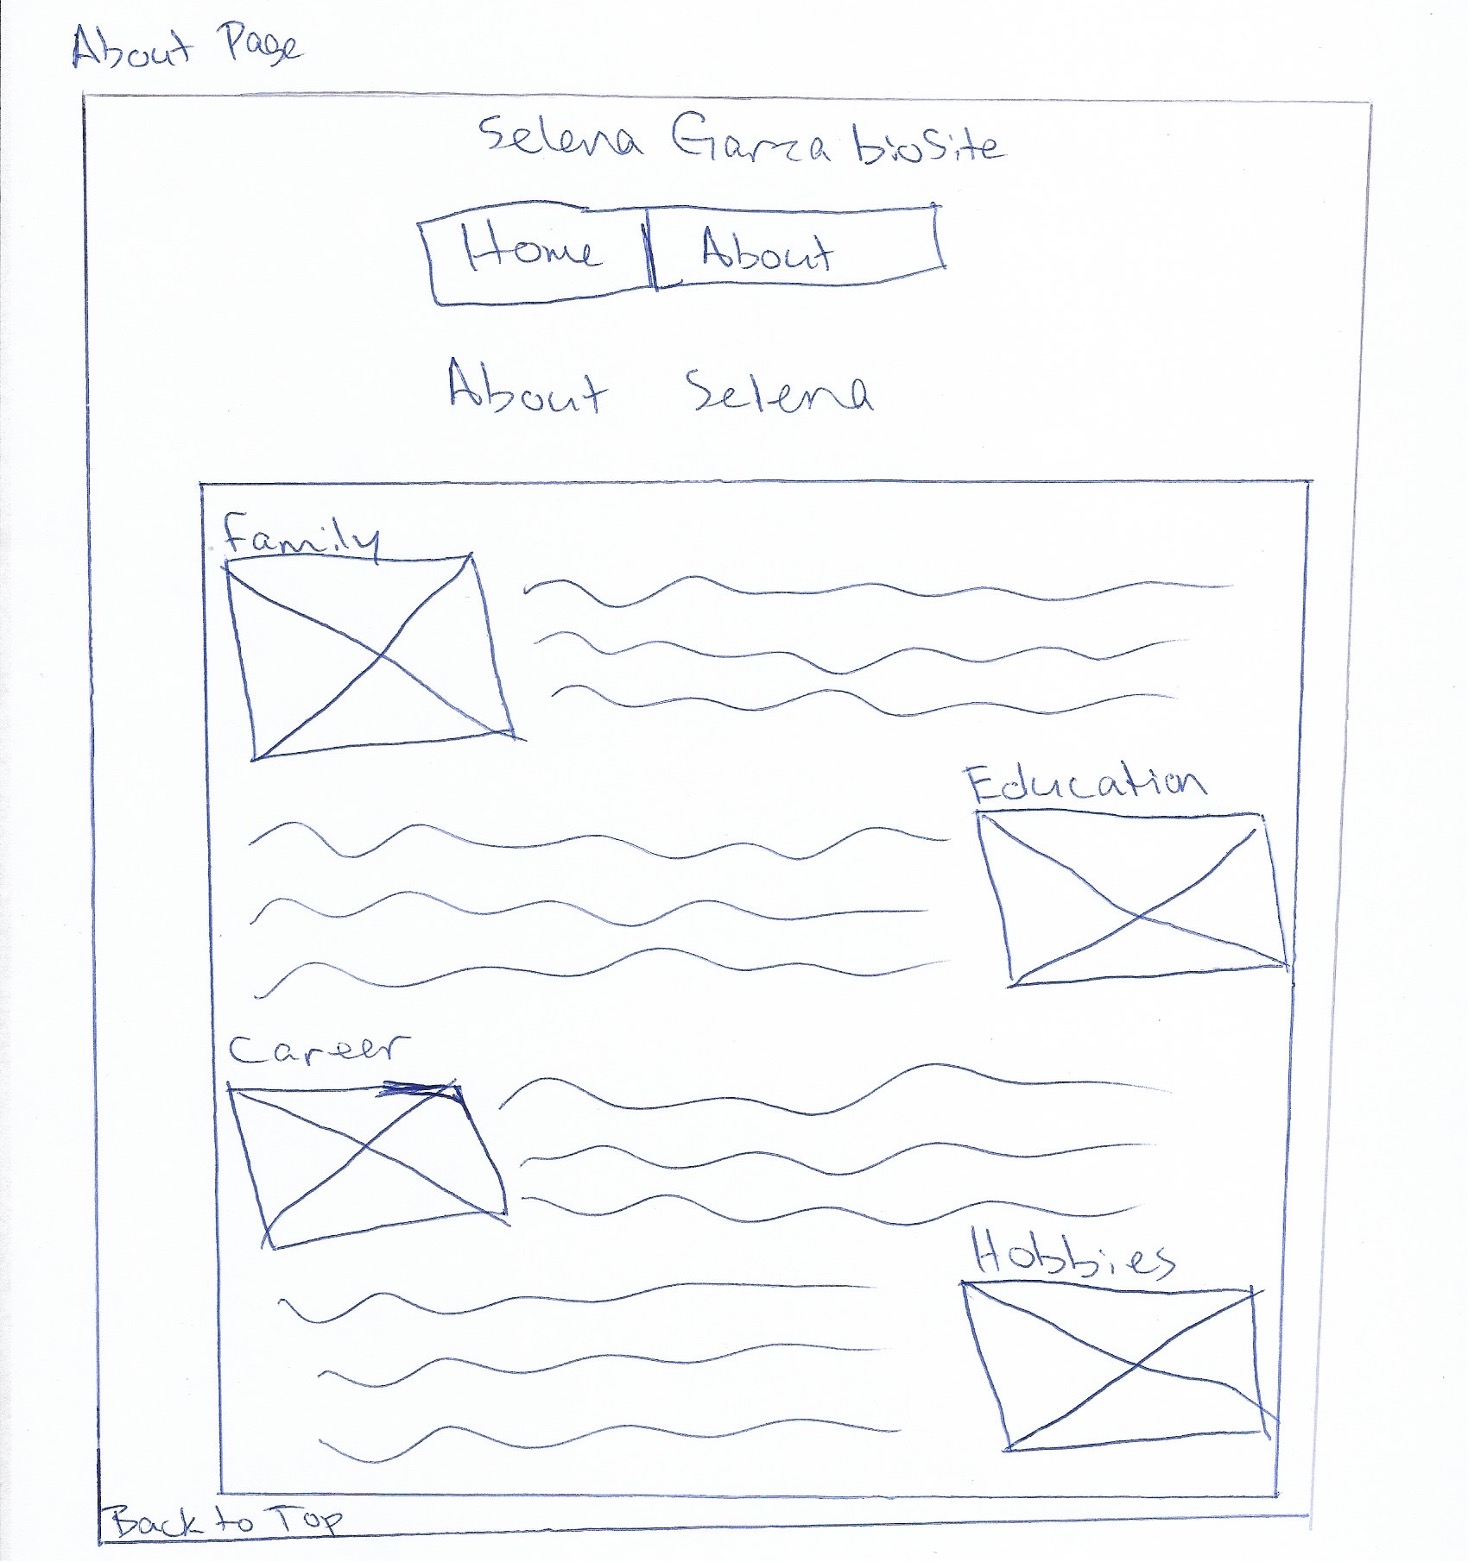 About Page
Selena Garza bioSite
Home About
About Selena
Family
Education
Career
Hobbies
Back to Top